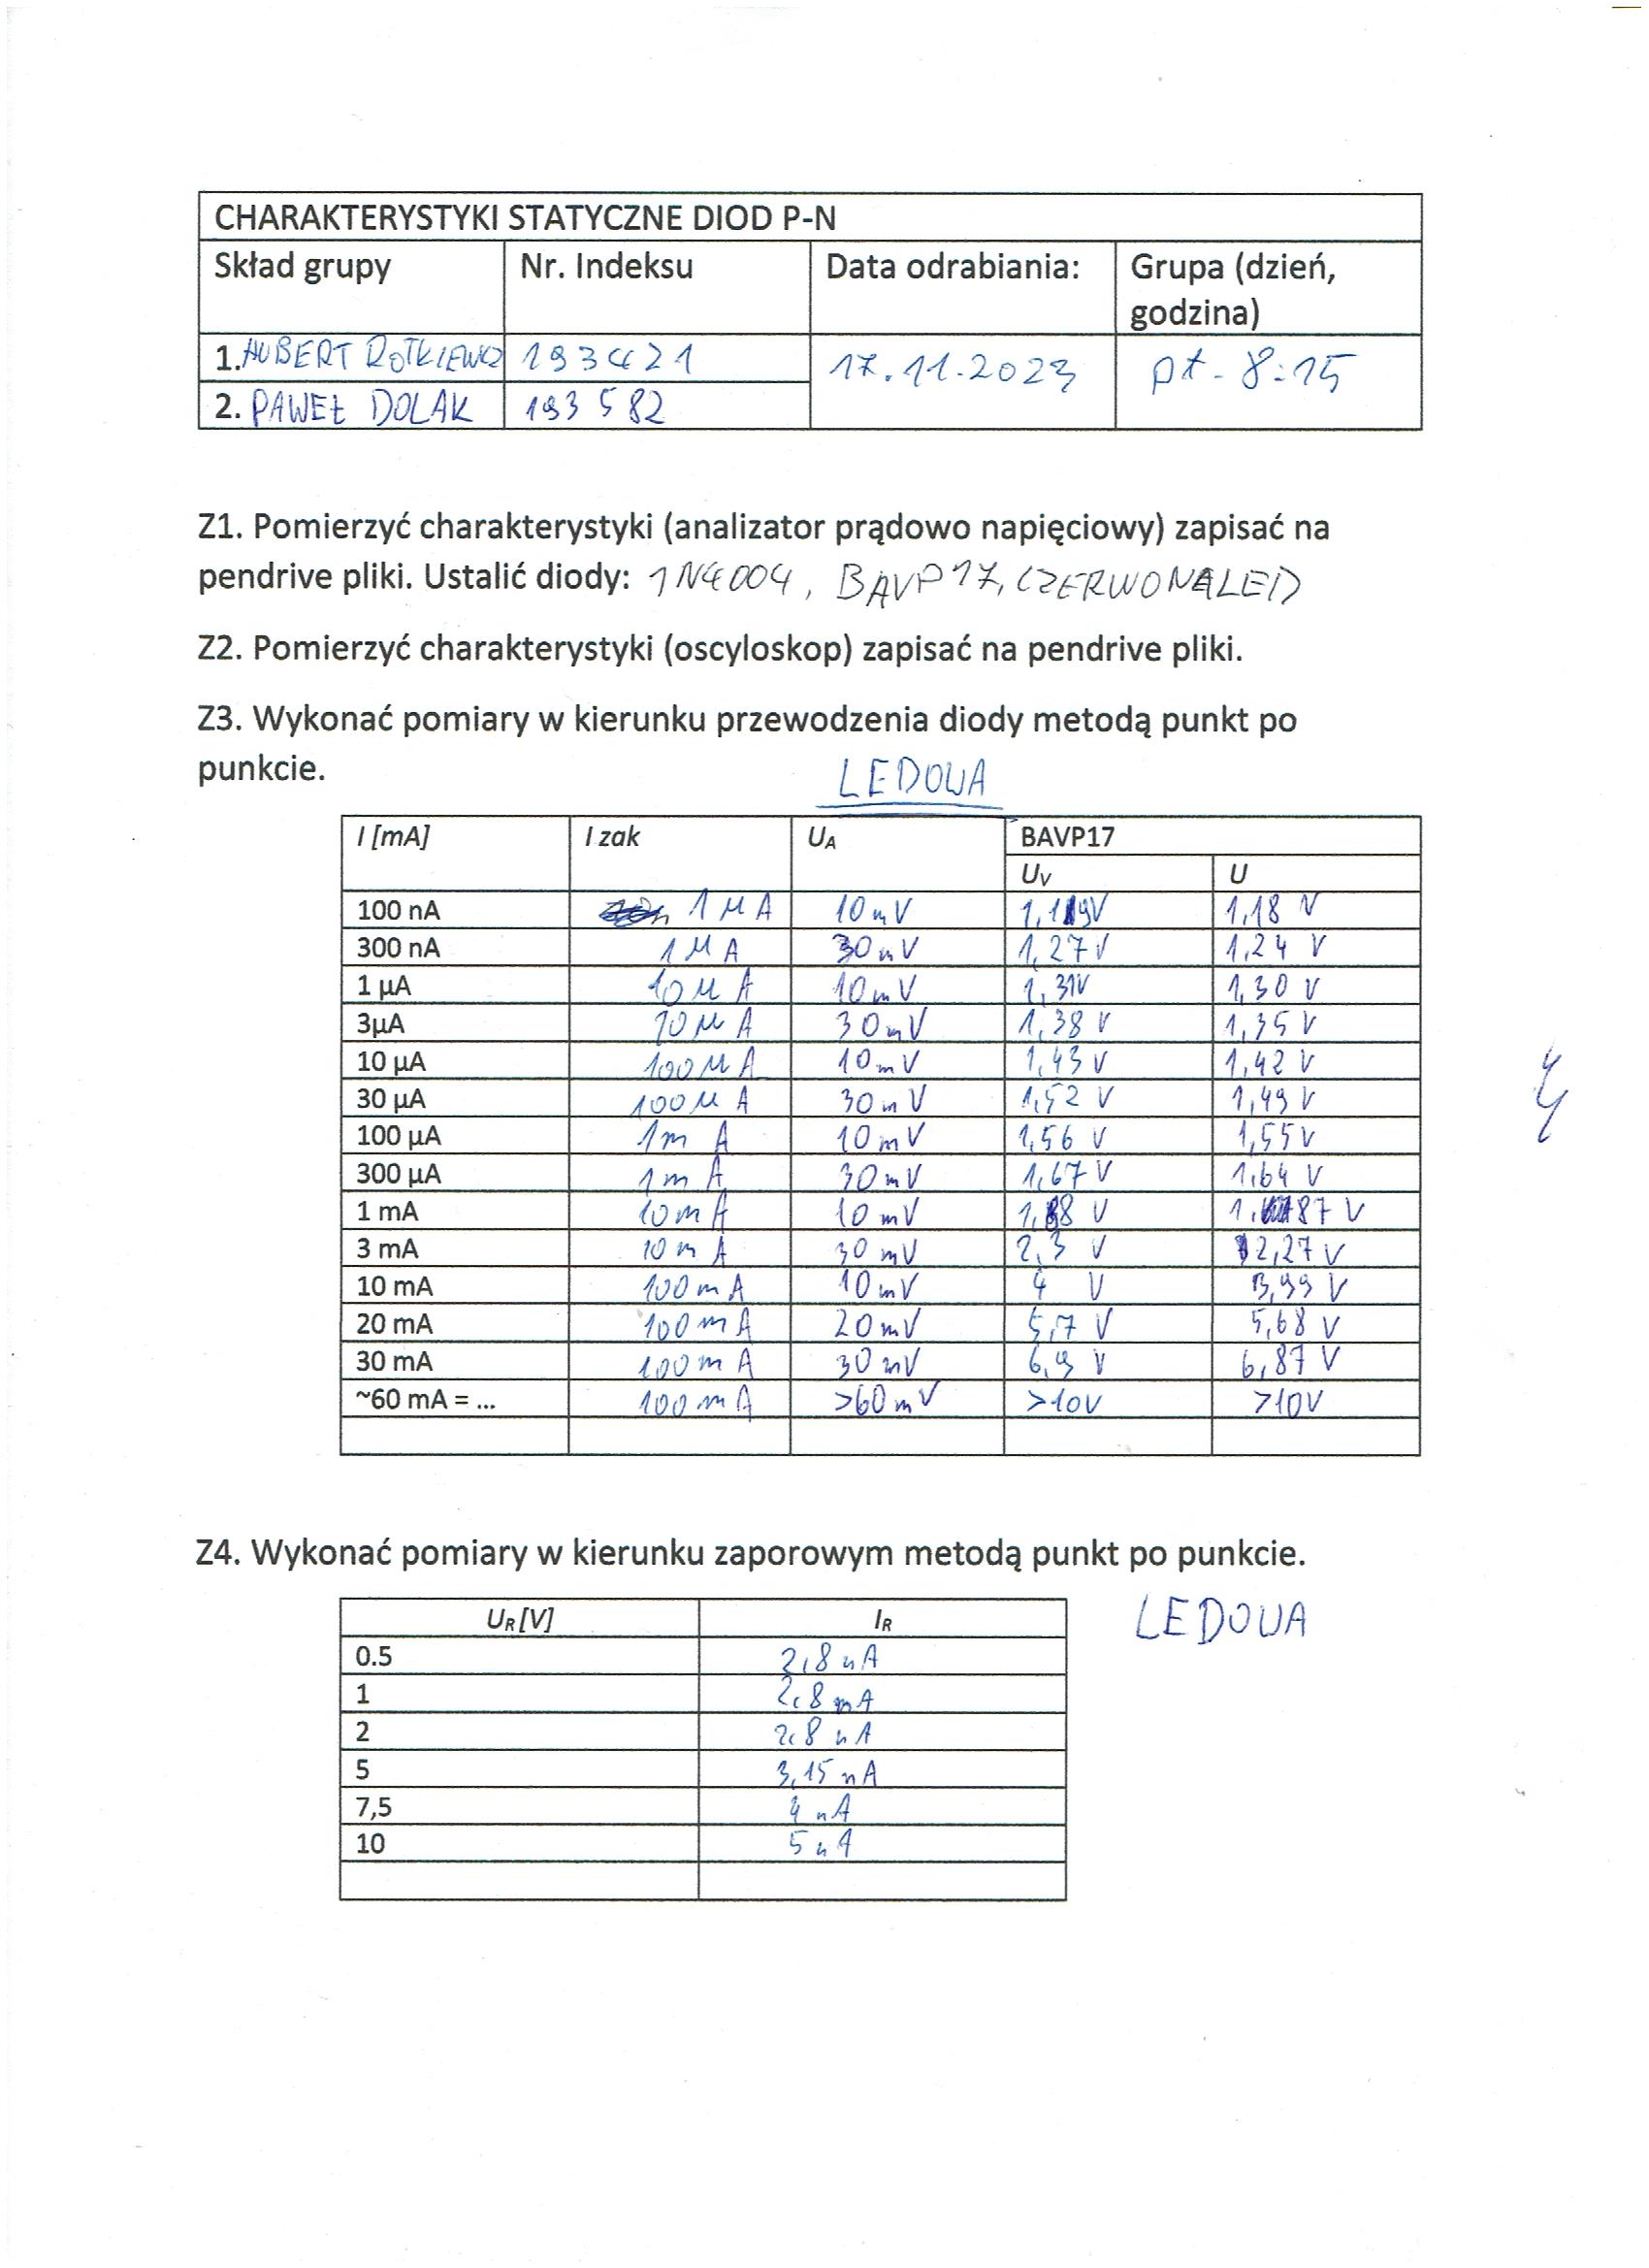 CHARAKTERYSTYKI STATYCZNE DIOD P-N
Skład grupy Nr. Indeksu Data odrabiania: Grupa (dzień, godzina)
1. HUBERT ROTKIEWICZ 193421 17.11.2023 pt. 8:15
2. PAWEŁ DOLAK 193582
Z1. Pomierzyć charakterystyki (analizator prądowo napięciowy) zapisać na
pendrive pliki. Ustalić diody: 1N4004, BAVP17, CZERWONA LED
Z2. Pomierzyć charakterystyki (oscyloskop) zapisać na pendrive pliki.
Z3. Wykonać pomiary w kierunku przewodzenia diody metodą punkt po
punkcie.
LEDOWA
I [mA] I zak UA BAVP17
UV U
100 nA 1 μA 10 mV 1,19V 1,18 V
300 nA 1 μA 30 mV 1,27V 1,24 V
1 μA 10 μA 10 mV 1,31V 1,30 V
3μA 10 μA 30 mV 1,38 V 1,35 V
10 μA 100 μA 10 mV 1,43 V 1,42 V
30 μA 100 μA 30 mV 1,52 V 1,49 V
100 μA 1m A 10 mV 1,56 V 1,55 V
300 μA 1m A 30 mV 1,67 V 1,64 V
1 mA 10 m A 10 mV 1,88 V 1,87 V
3 mA 10 m A 30 mV 2,3 V 2,27 V
10 mA 100 m A 10 mV 4 V 3,99 V
20 mA 100 m A 20 mV 5,7 V 5,68 V
30 mA 100 m A 30 mV 6,9 V 6,87 V
~60 mA = ... 100 m A >60 mV >10V >10V
Z4. Wykonać pomiary w kierunku zaporowym metodą punkt po punkcie.
LEDOWA
UR [V] IR
0.5 2,8 nA
1 2,8 nA
2 2,8 nA
5 3,15 nA
7,5 4 nA
10 5 nA